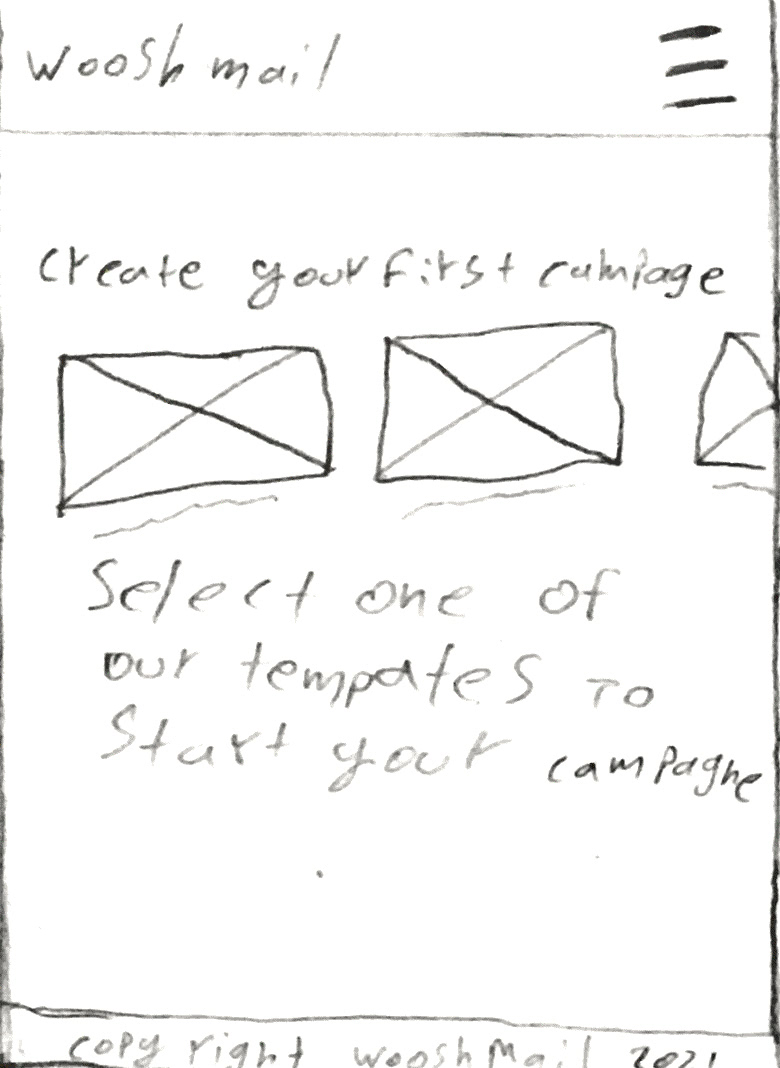 woosh mail
Create your first campage
Select one of
our tempates To
Start your campagne
copy right wooshMail 2021